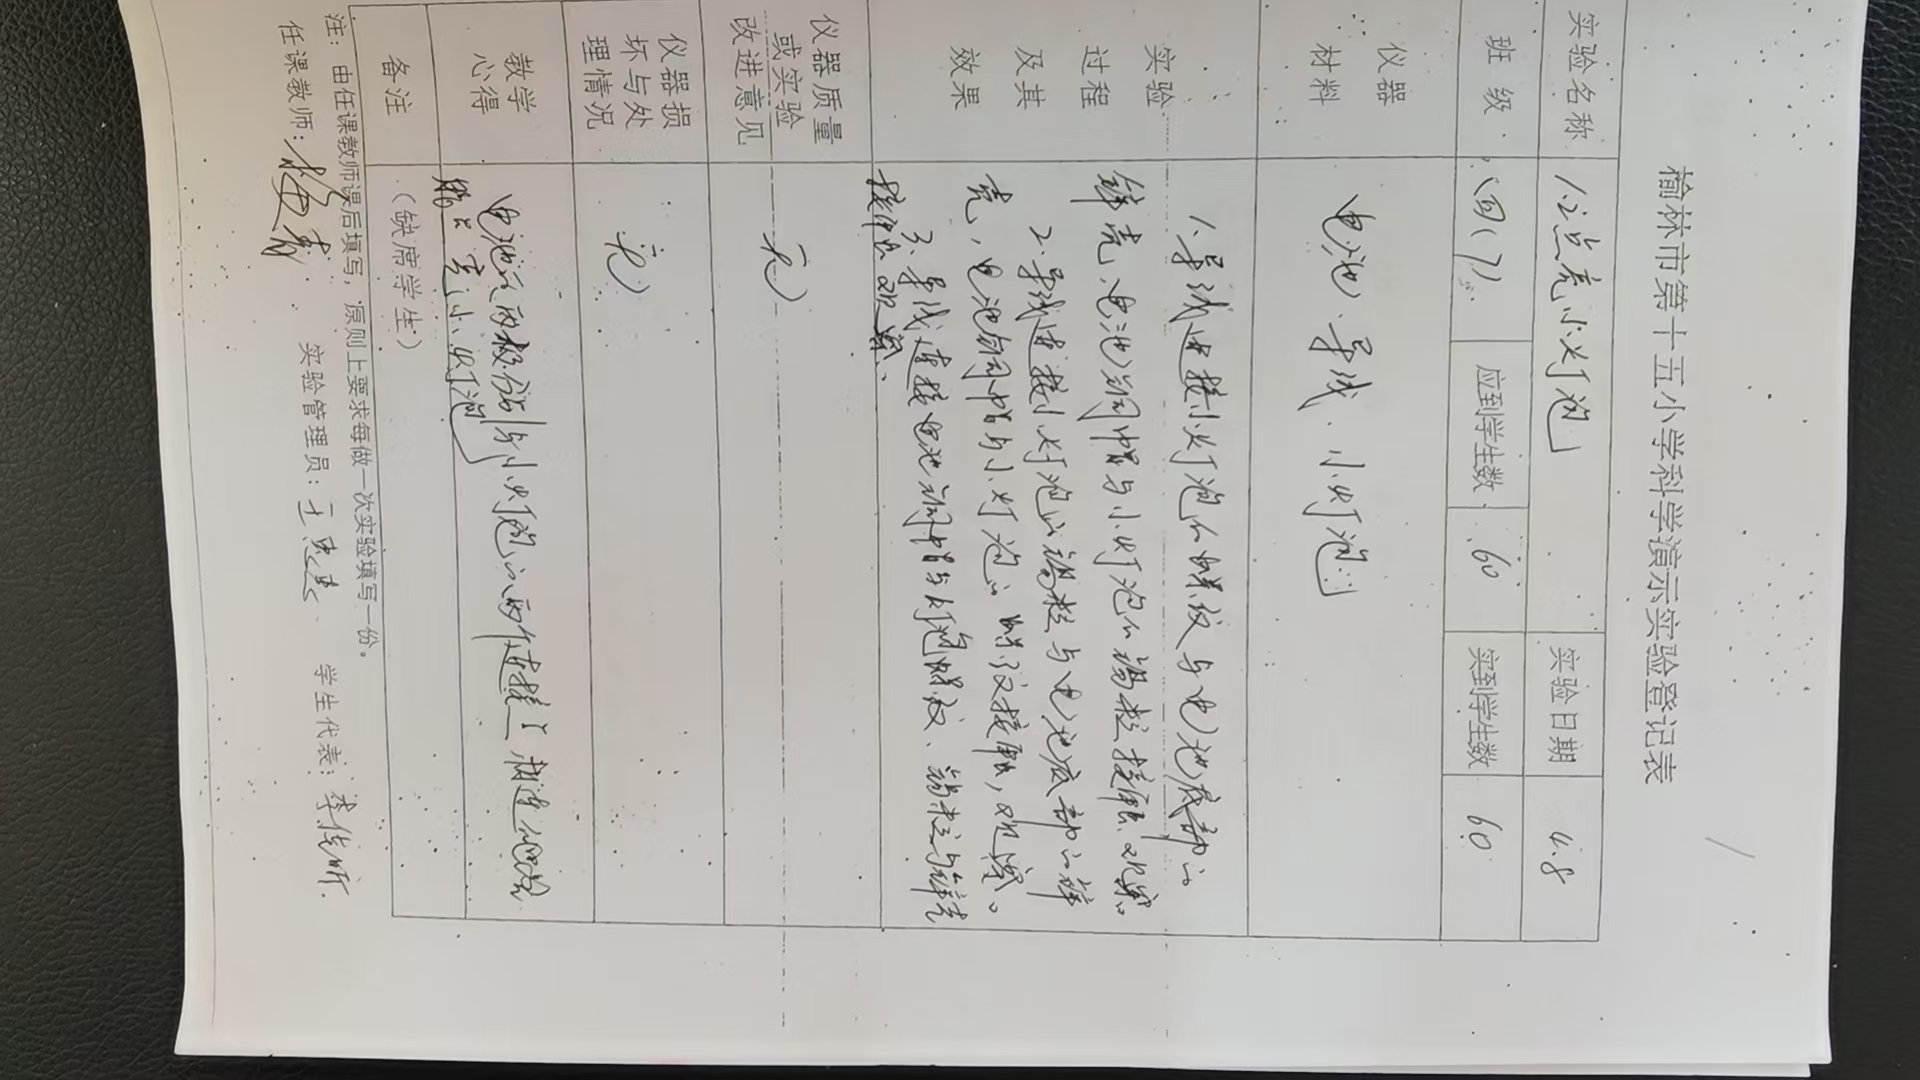 榆林市第十五小学科学演示实验登记表
实验名称 点亮小灯泡 实验日期 4.8
班级 四(7) 应到学生数 60 实到学生数 60
仪器材料 电池、导线、小灯泡
实验过程及其效果
1、导线连接小灯泡的螺纹与电池底部的
锌壳、电池铜帽与小灯泡的锡粒接触、观察。
2、导线连接小灯泡的锡粒与电池底部的锌
壳，电池铜帽与小灯泡的螺纹接触，观察。
3、导线连接电池铜帽与灯泡螺纹、锡粒与锌壳
接触、观察、
仪器质量或实验改进意见 无
仪器损坏与处理情况 无
教学心得
电池的两极分别与小灯泡的两个连接
小灯泡
备注 （缺席学生）
注：由任课教师课后填写，原则上要求每做一次实验填写一份。
任课教师： 实验管理员：王 学生代表：李